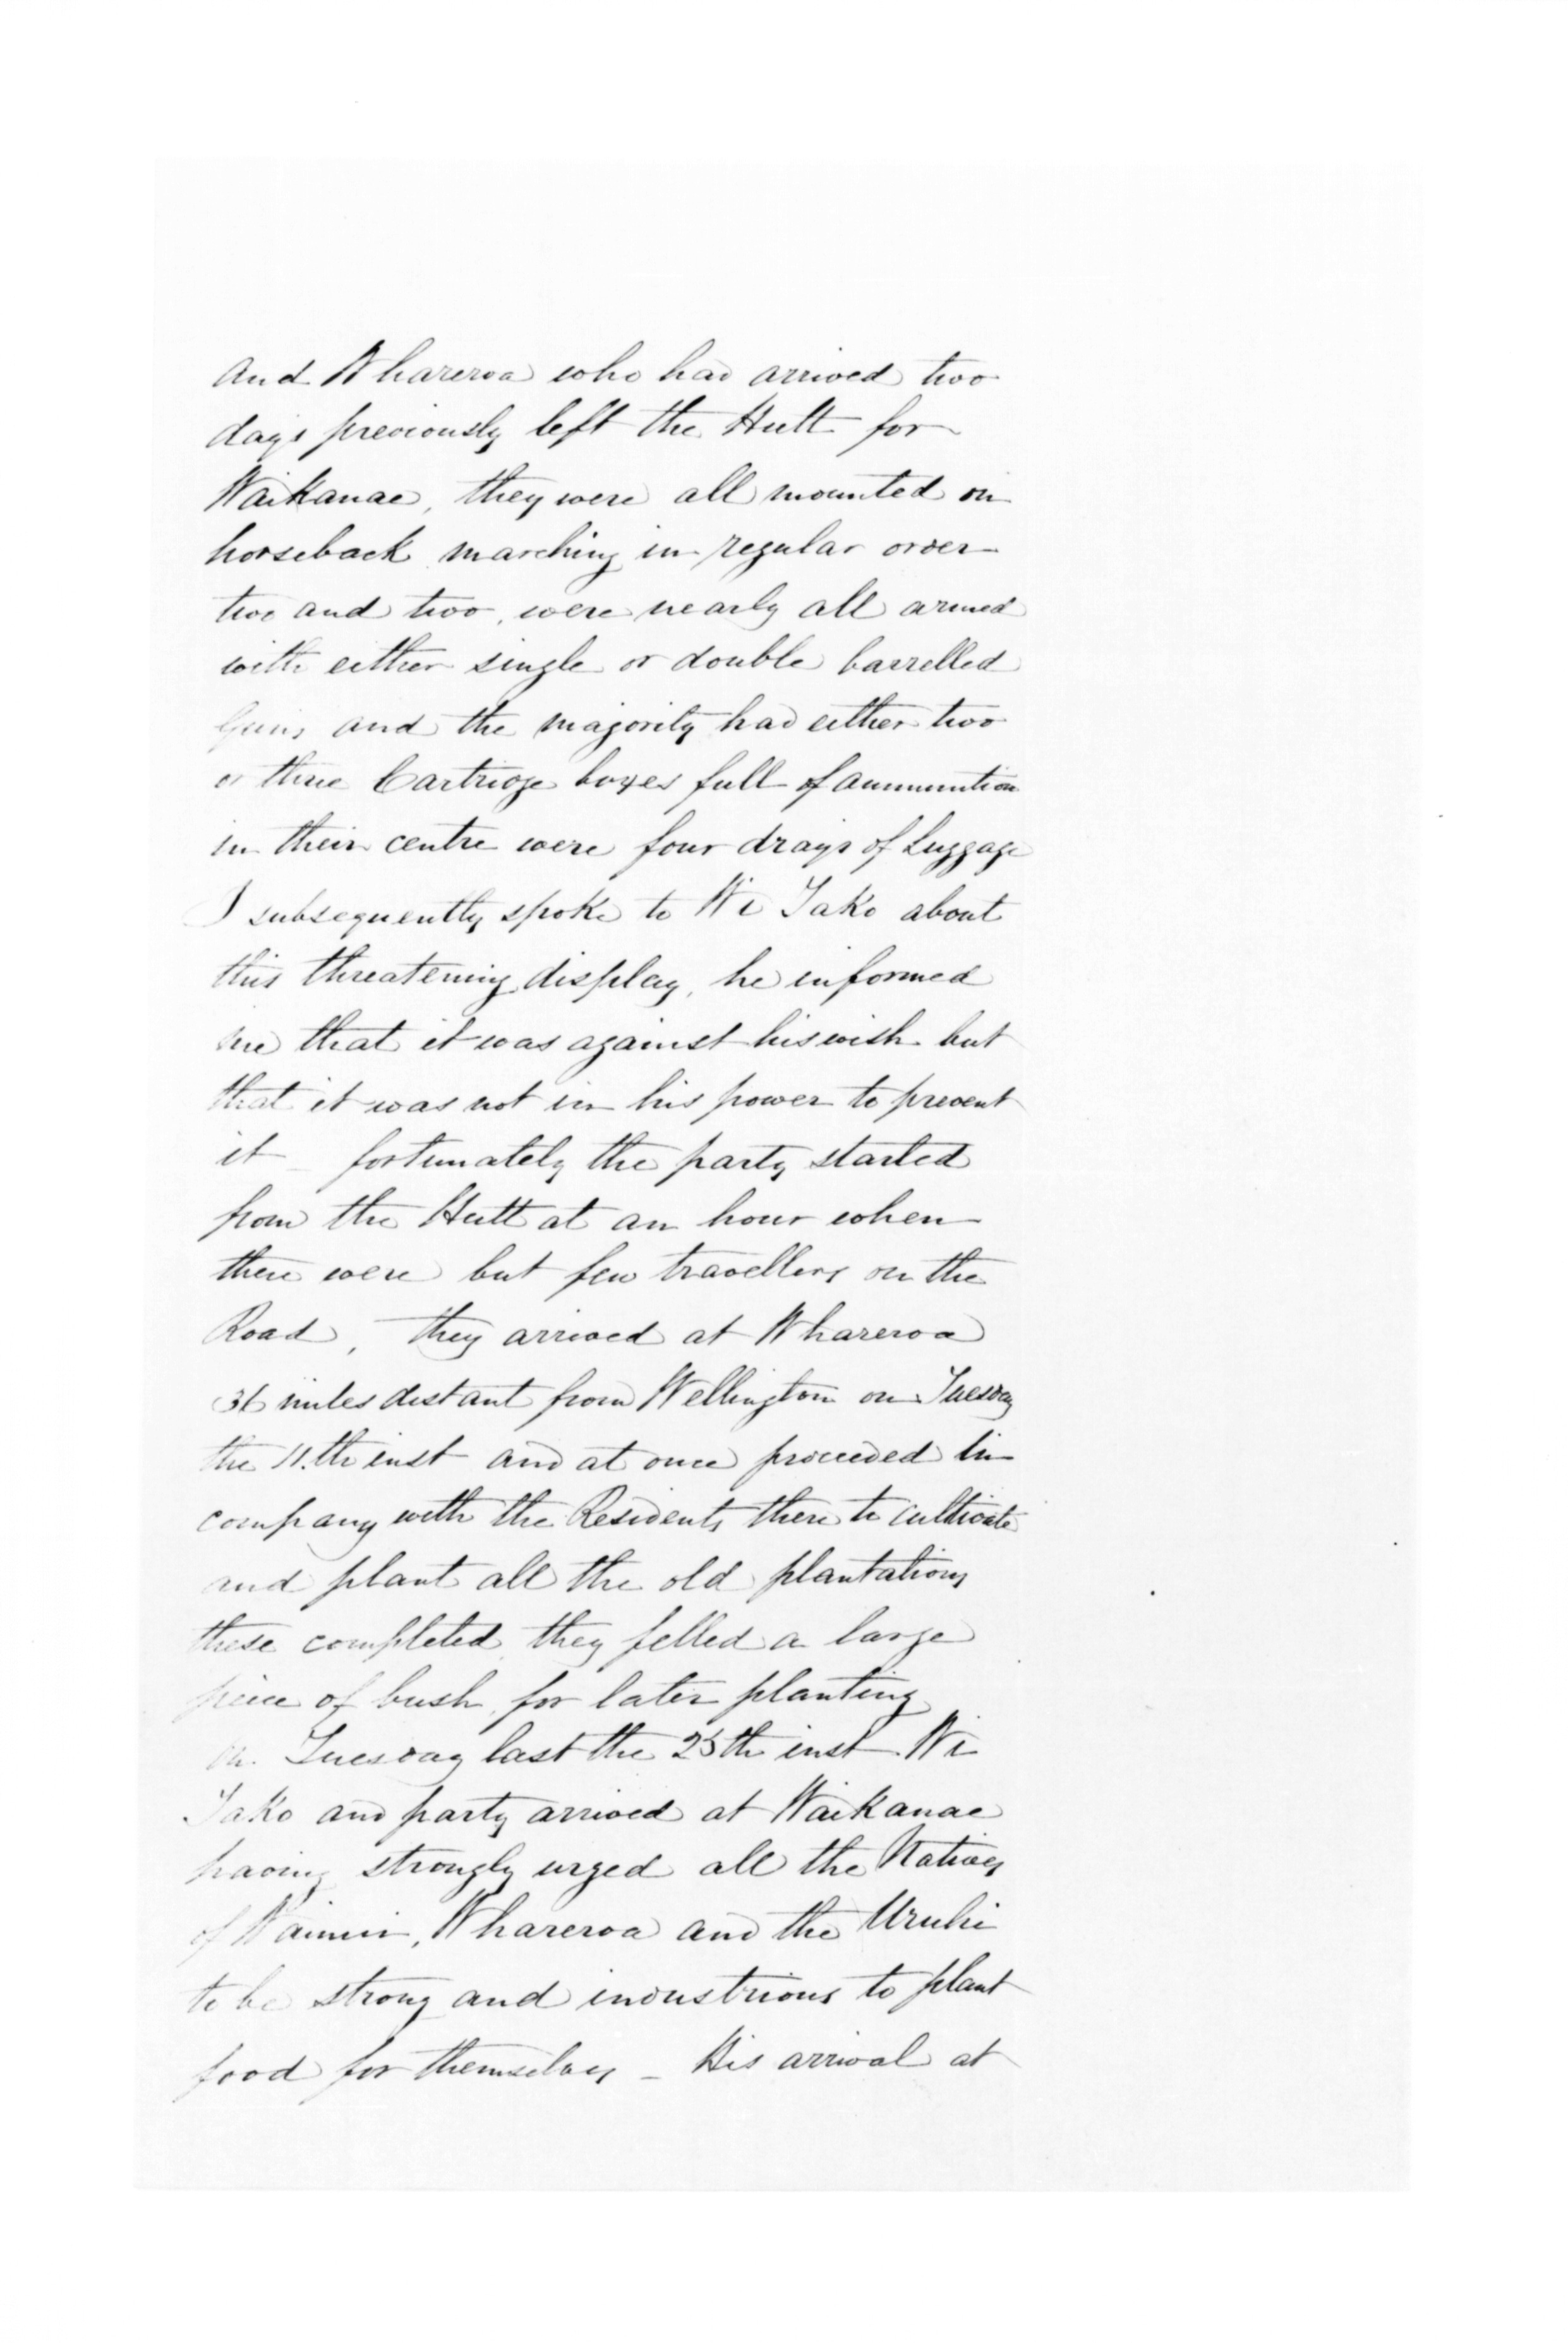 and Whareroa who had arrived two
days previously left the Hutt for
Waikanae, they were all mounted on
horseback marching in regular order
two and two, were nearly all armed
with either single or double barrelled
Guns and the majority had either two
or three Cartridge boxes full of ammunition
in their centre were four drays of Luggage
I subsequently spoke to Wi Tako about
this threatening display, he informed
me that it was against his wish but
that it was not in his power to prevent
it _ fortunately the party started
from the Hutt at an hour when
there were but few travellers on the
Road, they arrived at Whareroa
36 miles distant from Wellington on Tuesday
the 11.th inst and at once proceeded in
company with the Residents there to cultivate
and plant all the old plantations
these completed, they felled a large
piece of bush, for later planting
on Tuesday last the 25th inst Wi
Tako and party arrived at Waikanae
having strongly urged all the Natives
of Wainui, Whareroa and the Uruhi
to be strong and industrious to plant
food for themselves _ His arrival at